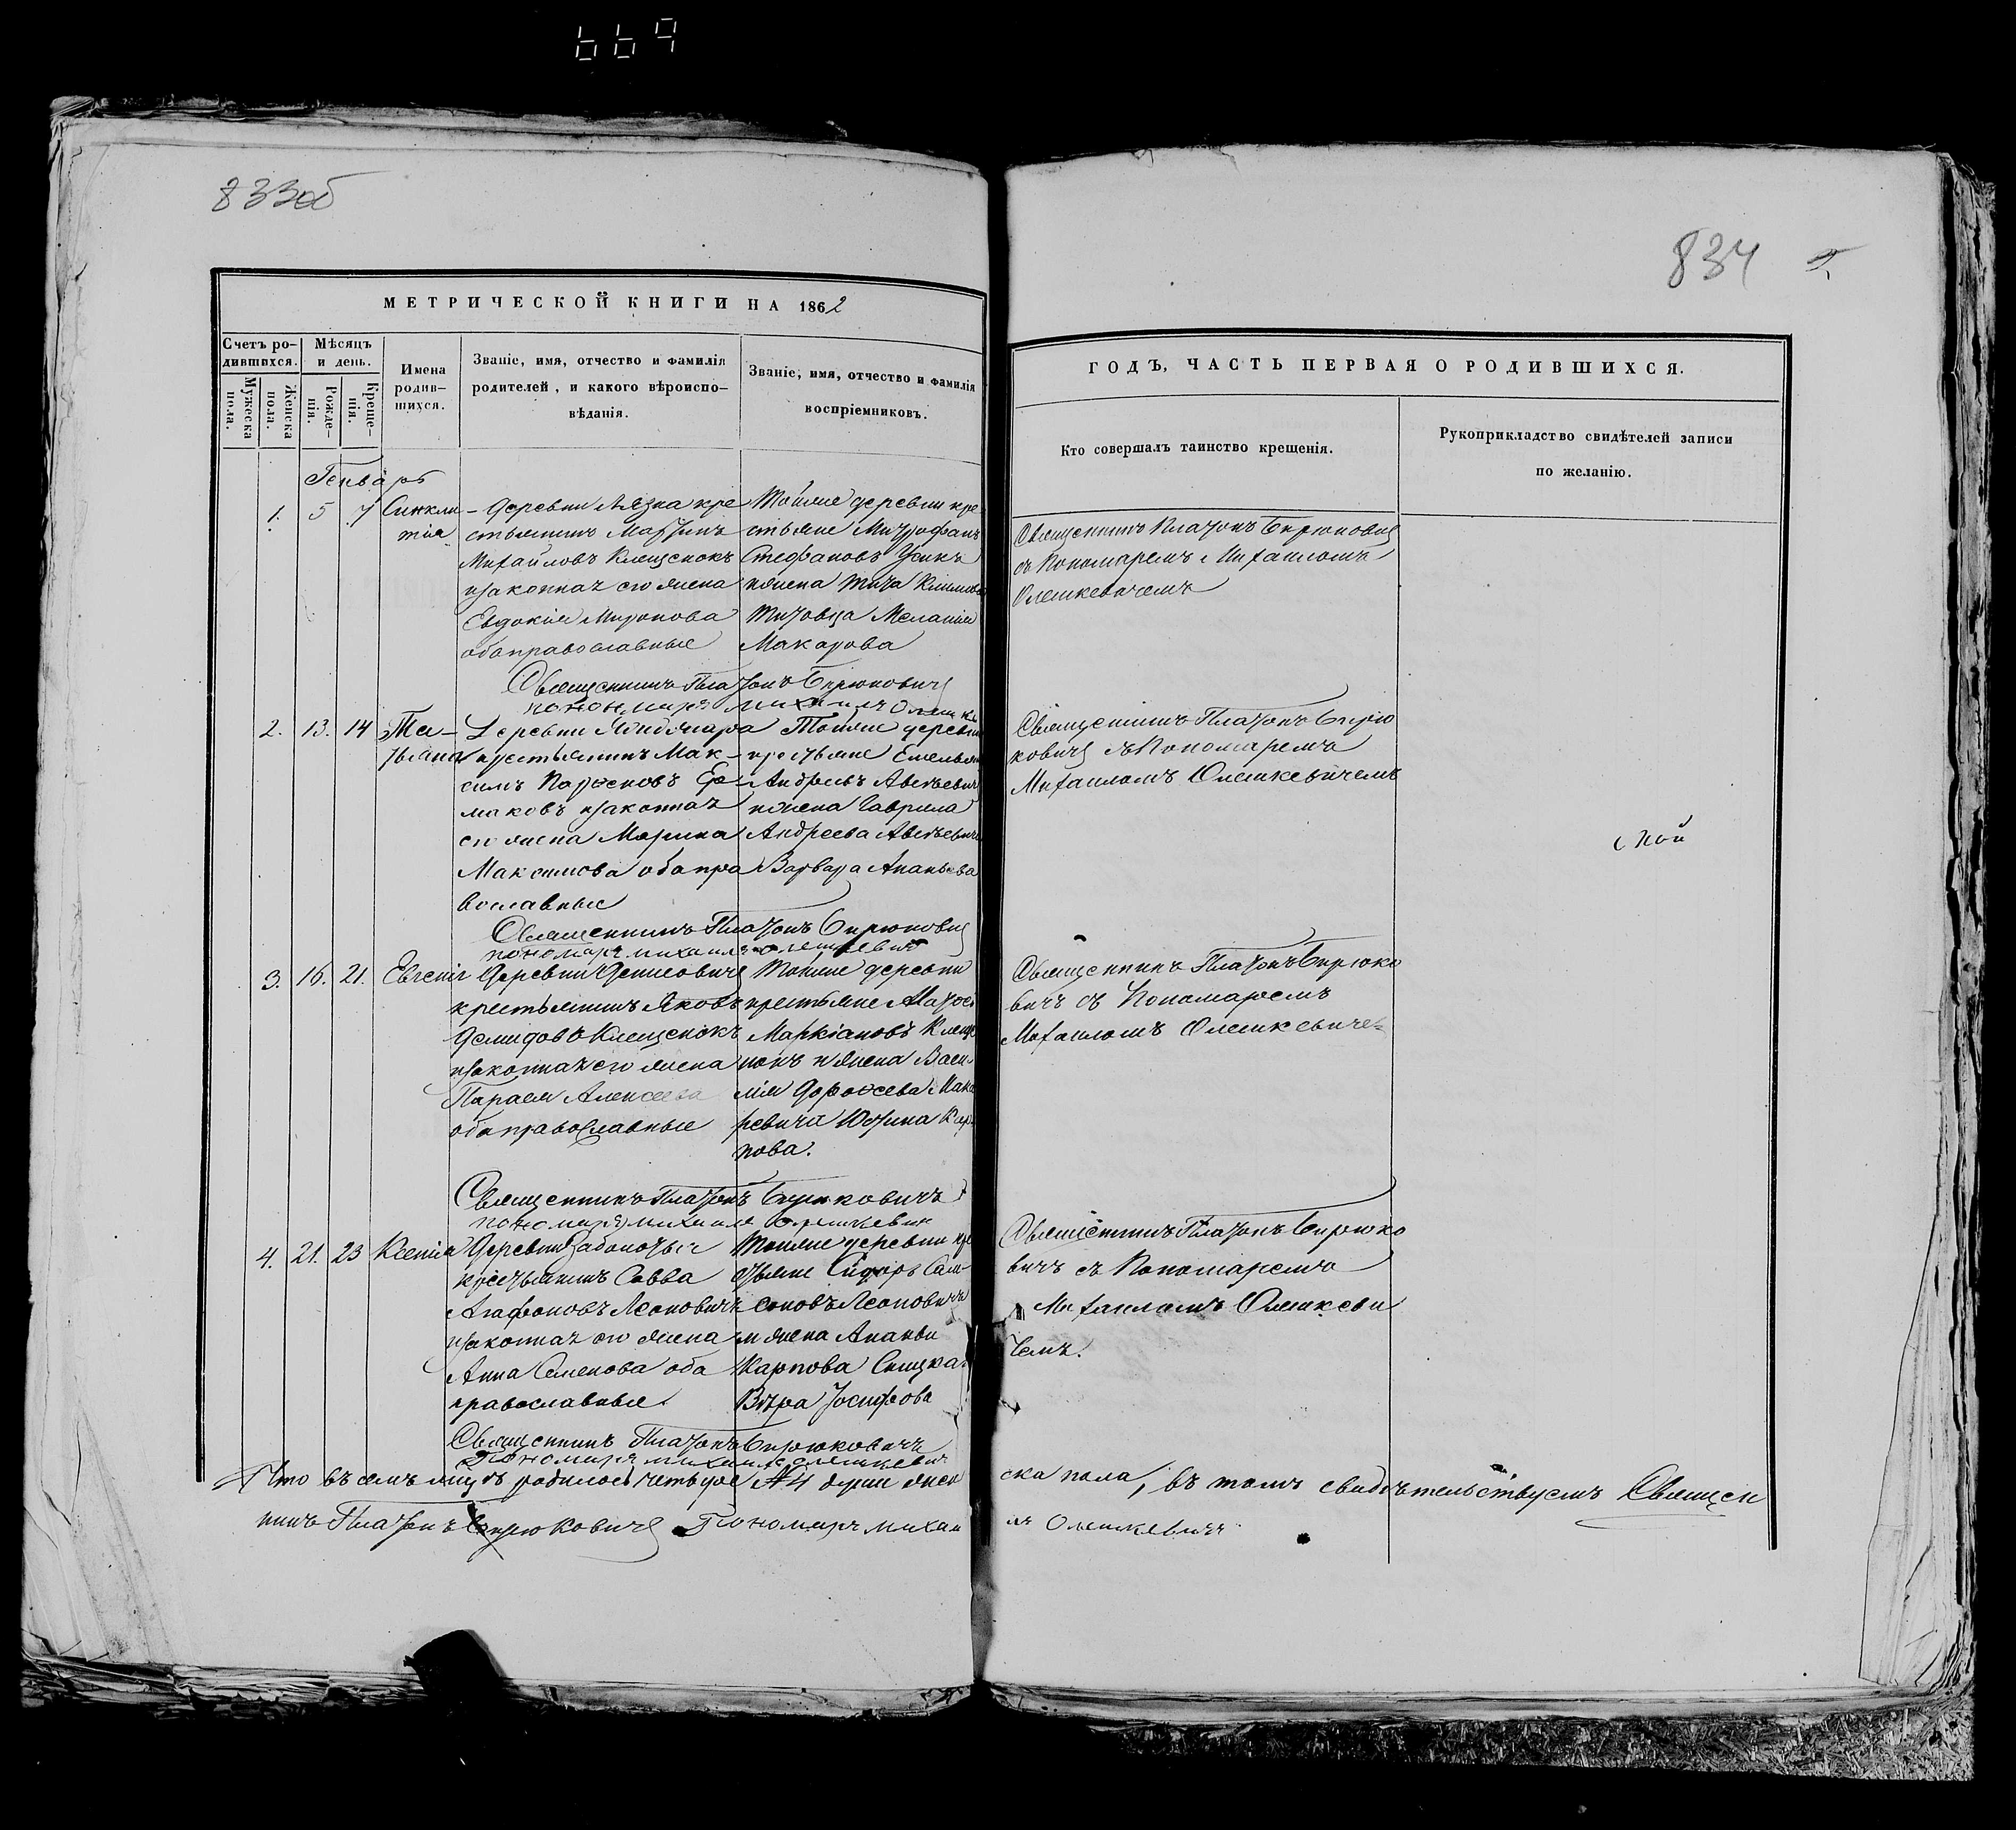 669
833об
834
МЕТРИЧЕСКОЙ КНИГИ НА 1862
Счетъ ро-
дившихся.
Мужеска
пола.
Женска
пола.
Мѣсяцъ
и день.
Рожде-
нія.
Креще-
нія.
Имена
родив-
шихся.
Званіе, имя, отчество и фамилія
родителей, и какого вѣроиспо-
вѣданія.
Званіе, имя, отчество и фамилія
воспріемниковъ.
Генварь
1. 5 7
Синкли
тія
Деревни кре
стьянинъ Мартинъ
Михайловъ Клещенокъ
законная его жена
Евдокія Миронова
оба православные
Тойже деревни кре
стьяне Митрофанъ
Стефановъ Усикъ
и жена Тита
Титовца Меланія
Макарова
Священникъ Платонъ Бирюковичъ
пономарь Михаилъ
2. 13. 14
Та-
тьяна
Деревни
крестьянинъ Мак-
симъ Ер-
маковъ законная
его жена Марина
Максимова оба пра
вославные
Тойже деревни
крестьяне Емельян
Андреевъ
и жена Гаврила
Андреева
Варвара Ананьева
Священникъ Платонъ Бирюковичъ
пономарь Михаилъ Олешкевич
3. 16. 21.
Евгенія
Деревни Денисовичъ
крестьянинъ Яковъ
Демидовъ Клещенокъ
законная его жена
Алексеева
оба православные
Тойже деревни
крестьяне
Маркіановъ Клеще
нокъ и жена Васи-
лія Дорофеева Мака
ревича Юстина Кар
пова.
Священникъ Платонъ Бирюковичъ
пономарь Михаилъ Олешкевич
4. 21. 23
Ксенія
Деревни Заболотья
крестьянинъ Савва
Агафоновъ Леоновичъ
законная его жена
Анна Семенова оба
православные.
Тойже деревни кре
стьяне Сидоръ Сам-
соновъ Леоновичъ
и жена Ананьи
Карпова
Вѣра Іосифова
Священникъ Платонъ Бирюковичъ
Пономарь Михаилъ Олешкевич
Что въ семъ родилось четверо № 4 души жен
никъ Платонъ Бирюковичъ Пономарь Михаи
ГОДЪ, ЧАСТЬ ПЕРВАЯ О РОДИВШИХСЯ.
Кто совершалъ таинство крещенія.
Рукоприкладство свидѣтелей записи
по желанію.
Священникъ Платонъ Бирюковичъ
съ Пономаремъ Михаиломъ
Олешкевичемъ
Священникъ Платонъ Бирю
ковичъ съ Пономаремъ
Михаиломъ Олешкевичемъ
Священникъ Платонъ Бирюко
вичъ съ Пономаремъ
Михаиломъ Олешкевиче
Священникъ Платонъ Бирюко
вичъ съ Пономаремъ
Михаиломъ Олешкеви
чемъ.
ска пола, въ томъ свидѣтельствуемъ Священ
лъ Олешкевичъ